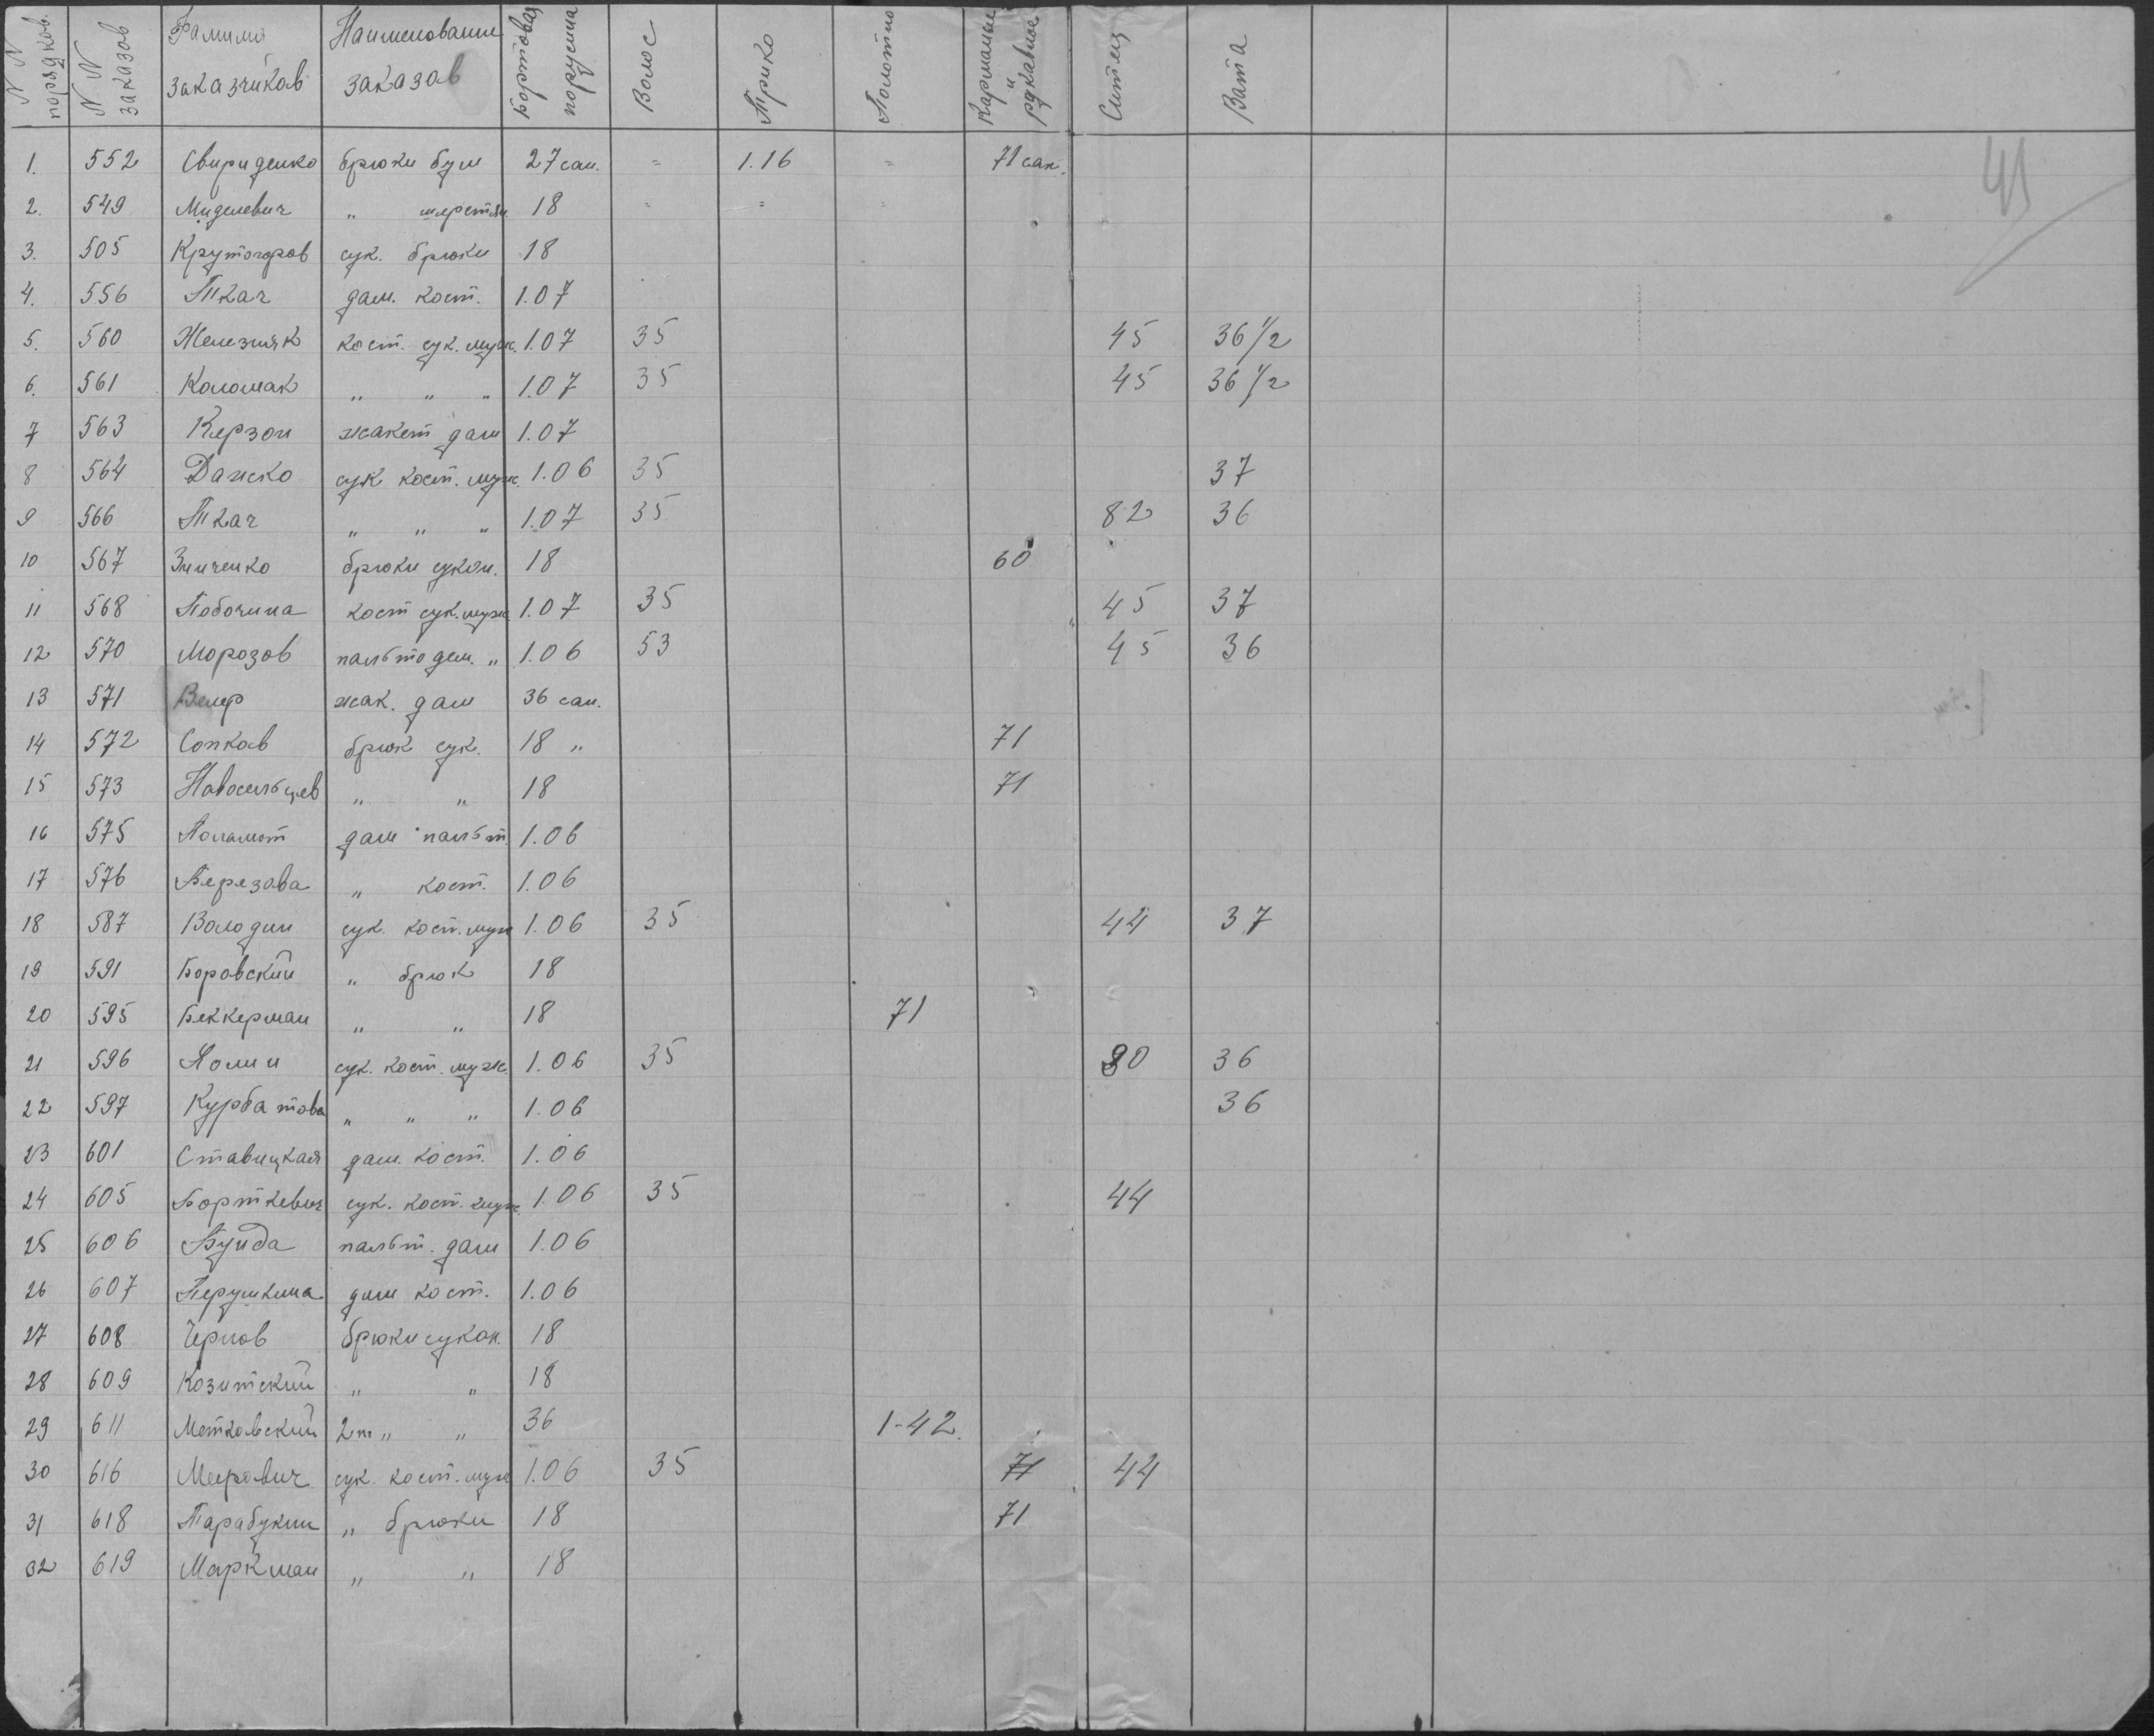 N N порядков. N N заказов Фамилия заказчиков Наименование заказов Бортовая порусина Волос Трико Полотно Карманые и рукавное Ситец Вата
41
1. 552 Свириденко брюки бум 27 сан. = 1.16 = 71 сан.
2. 549 Миделевич " шерстян 18 = = =
3. 505 Крутогоров сук. брюки 18
4. 556 Ткач дам. кост. 1.07
5. 560 Железняк кост. сук. муж. 1.07 35 45 36 1/2
6. 561 Коломак " " " 1.07 35 45 36 1/2
7 563 Керзон жакет дам 1.07
8 564 Данско сук кост. муж. 1.06 35 37
9 566 Ткач " " " 1.07 35 82 36
10 567 Зинченко брюки сукон. 18 60
11 568 Побочина кост сук. муж 1.07 35 45 37
12 570 Морозов пальто дем. " 1.06 53 45 36
13 571 жак. дам 36 сан.
14 572 Сопков брюк сук. 18 " 71
15 573 Новосельцев " " 18 71
16 575 дам пальт. 1.06
17 576 Березова " кост. 1.06
18 587 Володин сук. кост. муж 1.06 35 44 37
19 591 Боровский " брюк 18
20 595 Беккерман " " 18 71
21 596 сук. кост. муж. 1.06 35 90 36
22 597 Курбатова " " " 1.06 36
23 601 Ставицкая дам. кост. 1.06
24 605 Борткевич сук. кост. муж. 1.06 35 44
25 606 пальт. дам 1.06
26 607 Перушкина дам кост. 1.06
27 608 Чернов брюки сукон. 18
28 609 Козитский " " 18
29 611 Метковский 2 " " 36 1-42.
30 616 Меерович сук. кост. муж 1.06 35 71 44
31 618 Тарабукин " брюки 18 71
32 619 Маркман " " 18